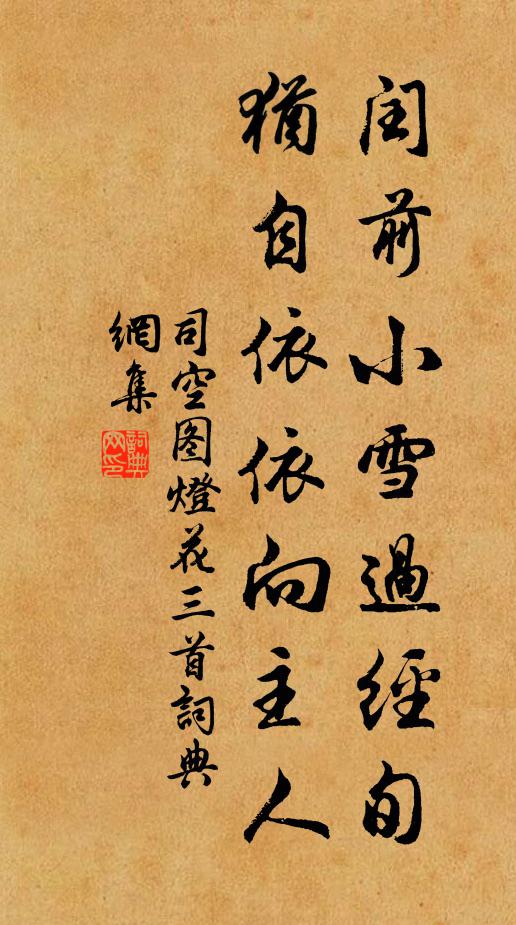 闰前小雪過經旬
猶自依依向主人
司空图燈花三首詞典
網集
詞典
网印